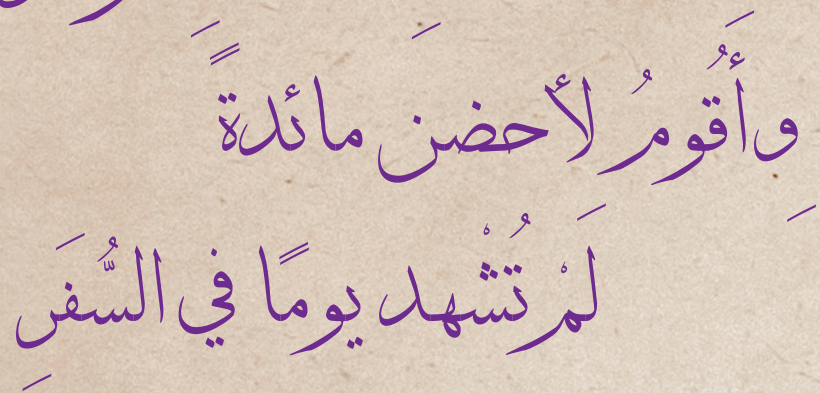 وأَقُومُ لأحضن مائدةً
لَمْ تُشْهد يومًا في السُّفَرِ